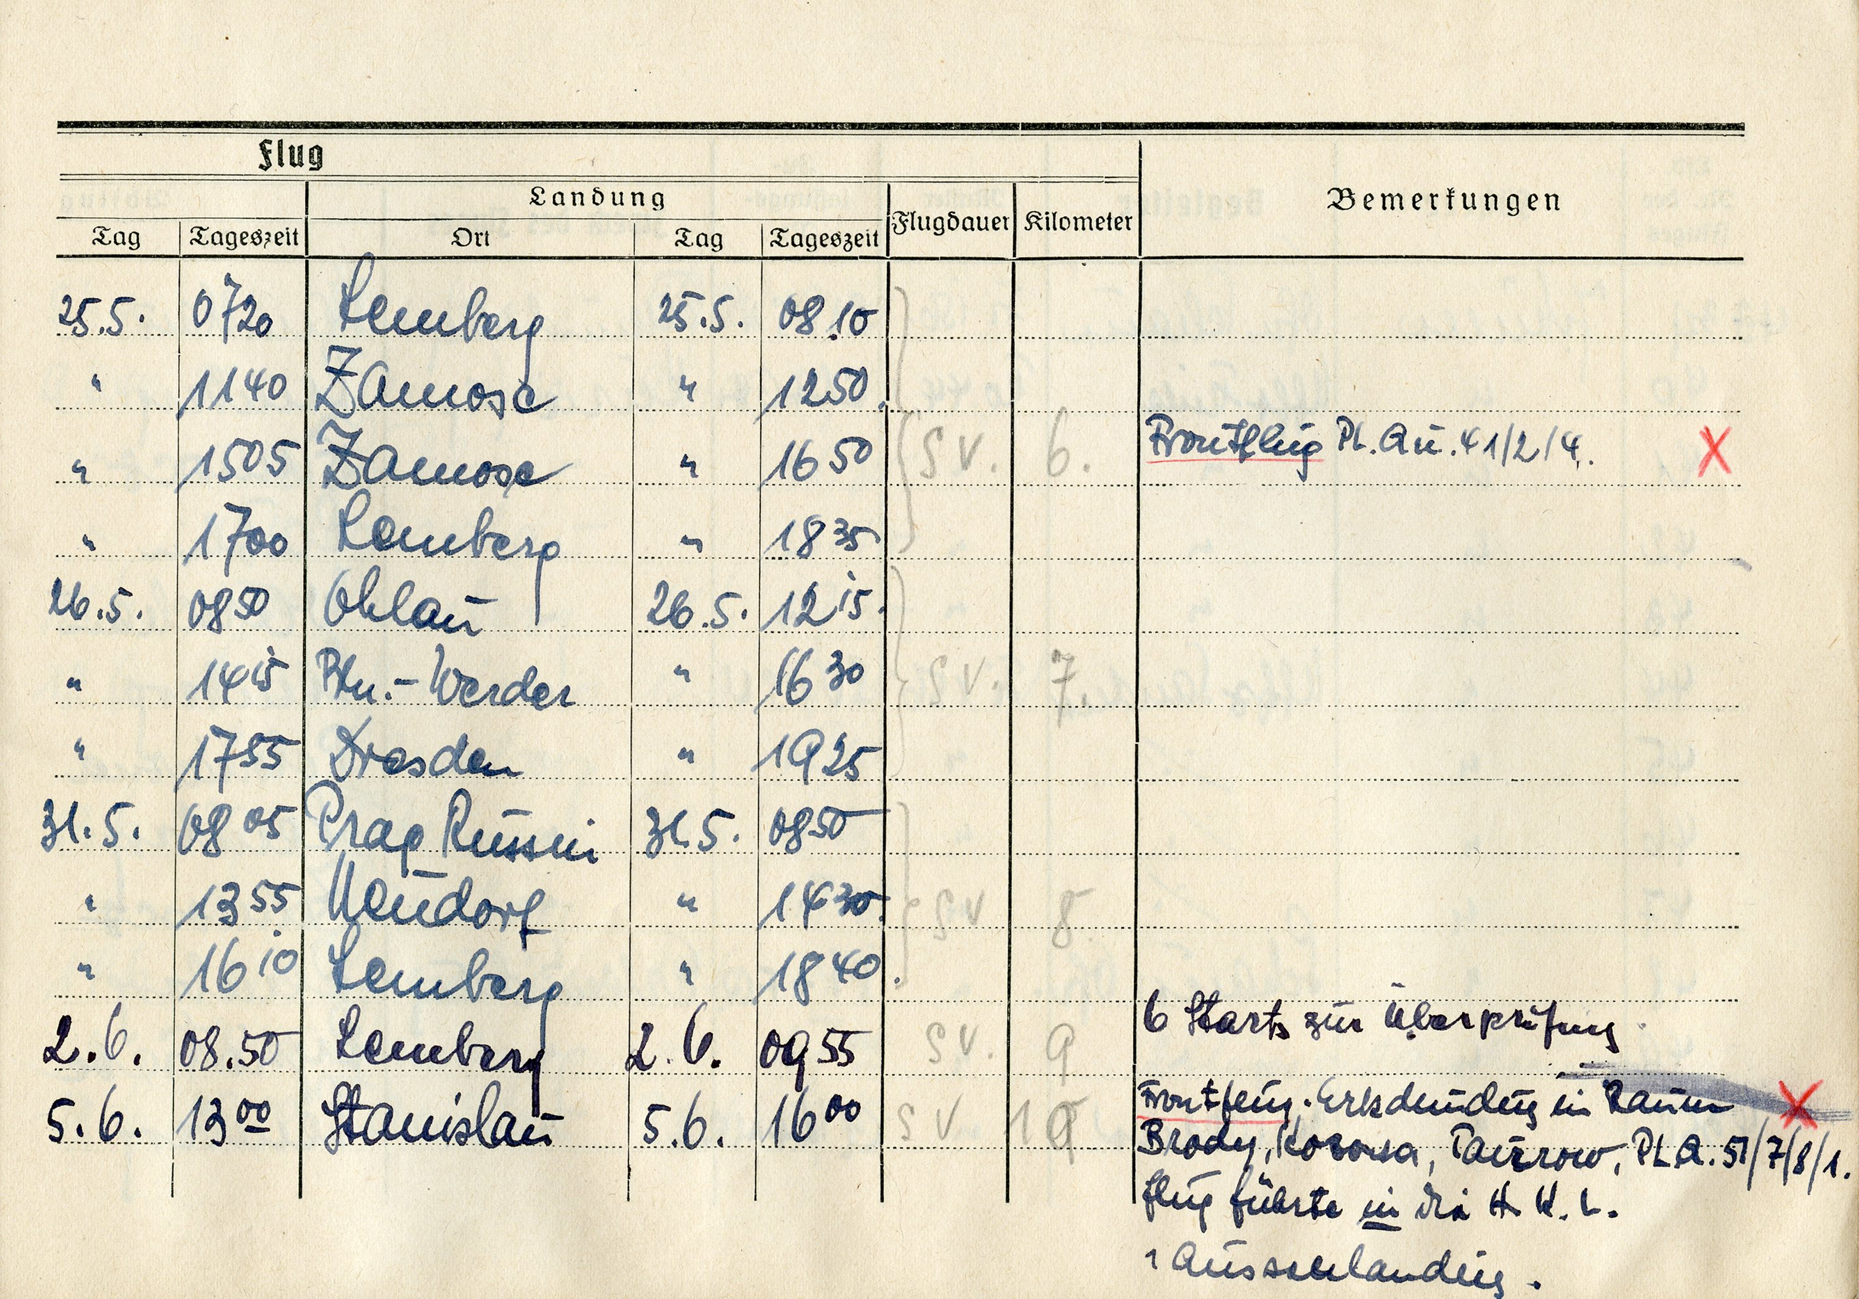 Flug
Landung
Flugdauer Kilometer Bemerkungen
Tag Tageszeit Ort Tag Tageszeit
25.5. 0720 Lemberg 25.5. 08.10
" 1140 Zamosc " 1250.
" 1505 Zamosc " 1650 SV. 6. Frontflug Pl. Qu. 41/2/4. X
" 1700 Lemberg " 1835
26.5. 0850 Ohlau 26.5. 1215.
" 1415 Bln.-Werder " 1630 SV. 7.
" 1755 Dresden " 1925
31.5. 0805 Prag Russin 31.5. 0850
" 1355 Neudorf " 1430. SV 8
" 1610 Lemberg " 1840.
6 Starts zur Überprüfung.
2.6. 08.50 Lemberg 2.6. 0955 SV. 9
5.6. 1300 Stanislau 5.6. 1600 SV 10 Frontflug. Erkundung im Raum X
Brody, Tarnow, Pl. Q. 51/7/8/1.
Flug führte in die H.K.L.
1 Aussenlandung.